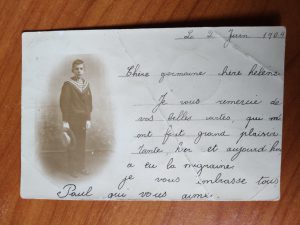 Le 2 Juin 1904
Chère germaine chère hélène
Je vous remercie de
vos belles cartes, qui m'
ont fait grand plaisir
tante hier et aujourd'hui
a eu la migraine.
je vous embrasse tous
Paul qui vous aime.